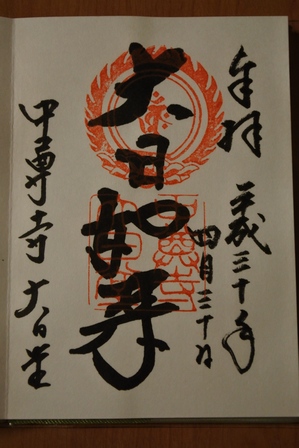 奉拝 平成三十年
四月三十日
大日如来
中尊寺大日堂